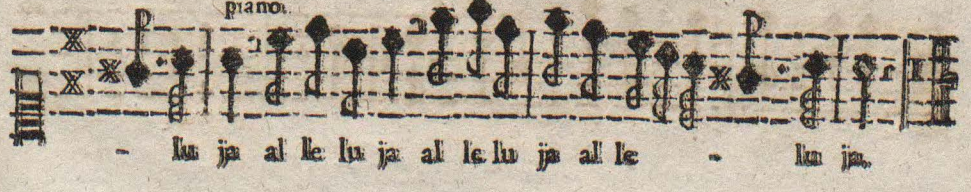 piano.
- lu ja al le lu ja al le lu ja al le - lu ja.